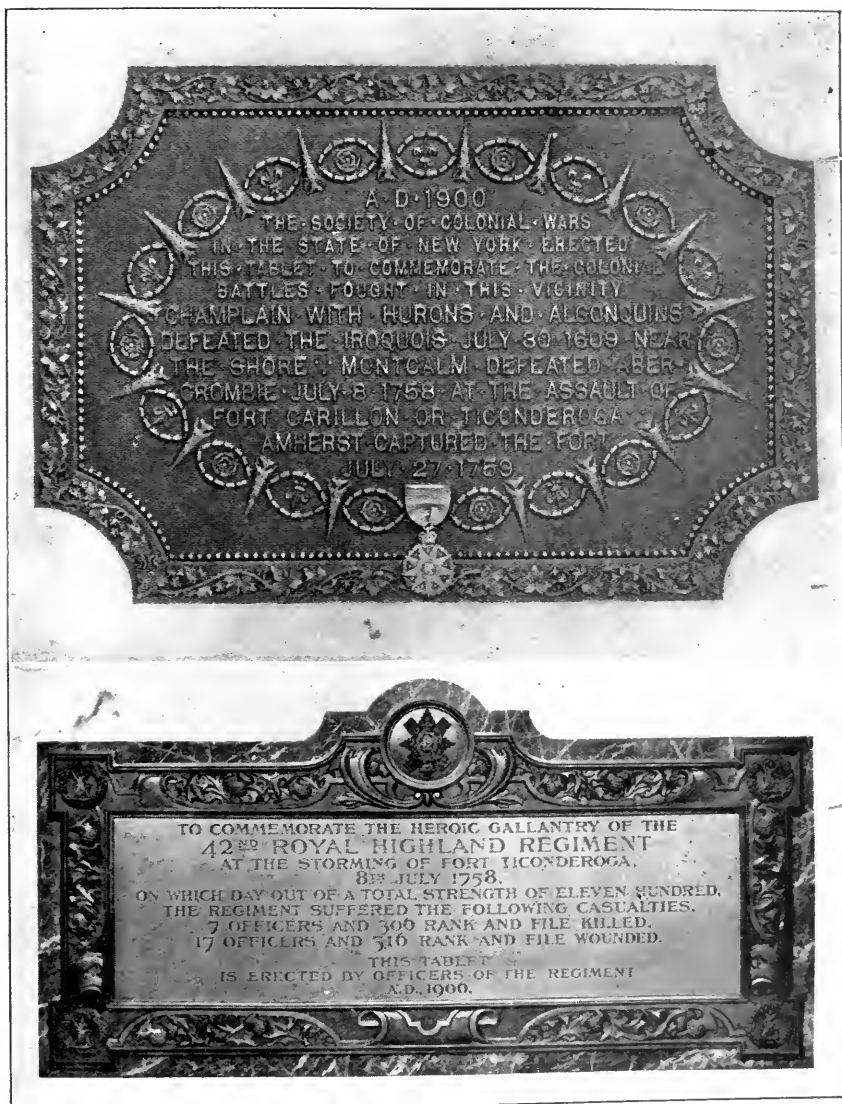 A·D·1900
THE·SOCIETY·OF·COLONIAL·WARS
IN·THE·STATE·OF·NEW·YORK·ERECTED
THIS·TABLET·TO·COMMEMORATE·THE·COLONIAL
BATTLES·FOUGHT·IN·THIS·VICINITY
CHAMPLAIN·WITH·HURONS·AND·ALGONQUINS
DEFEATED·THE·IROQUOIS·JULY·30·1609·NEAR
THE·SHORE·MONTCALM·DEFEATED·ABER-
CROMBIE·JULY·8·1758·AT·THE·ASSAULT·OF
FORT·CARILLON·OR·TICONDEROGA
AMHERST·CAPTURED·THE·FORT
JULY·27·1759
TO COMMEMORATE THE HEROIC GALLANTRY OF THE
42ND ROYAL HIGHLAND REGIMENT
AT THE STORMING OF FORT TICONDEROGA.
8TH JULY 1758.
ON WHICH DAY OUT OF A TOTAL STRENGTH OF ELEVEN HUNDRED,
THE REGIMENT SUFFERED THE FOLLOWING CASUALTIES.
7 OFFICERS AND 306 RANK AND FILE KILLED.
17 OFFICERS AND 316 RANK AND FILE WOUNDED.
THIS TABLET
IS ERECTED BY OFFICERS OF THE REGIMENT
A.D., 1906.